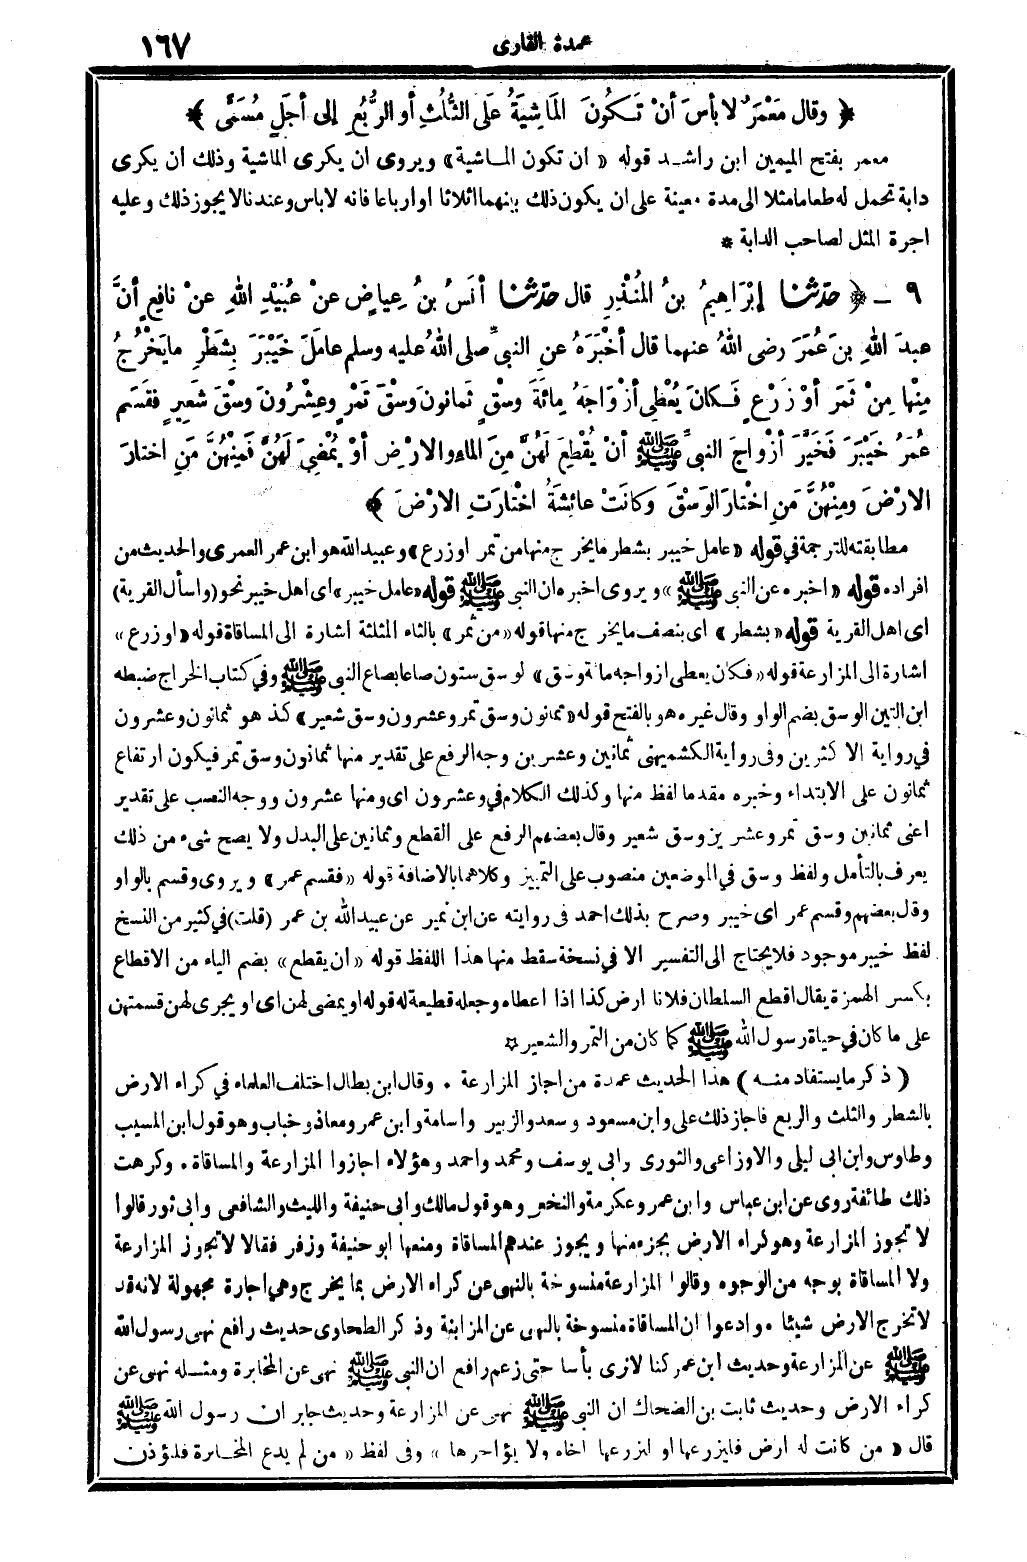 عمدة القارى ١٦٧
﴿ وقال مَعْمَرٌ لا بأسَ أنْ تَـكُونَ المَاشِيَةُ عَلَى الثُّلُثِ أو الرُّبُعِ إلى أجَلٍ مُسَمًّى ﴾
معمر بفتح الميمين ابن راشـد قوله « ان تكون المـاشية » ويروى ان يكرى الماشية وذلك ان يكرى
دابة تحمل له طعاما مثلا الى مدة معينة على ان يكون ذلك بينهما اثلاثا او ارباعا فانه لا باس وعندنا لا يجوز ذلك وعليه
اجرة المثل لصاحب الدابة *
٩ ـ ﴿ حدّثنا إبْرَاهِيمُ بنُ المُنْذِرِ قال حدّثنا أنَسُ بنُ عِياضٍ عنْ عُبَيْدِ اللهِ عنْ نافِعٍ أنَّ
عبدَ اللهِ بنَ عُمَرَ رضى اللهُ عنهما قال أخْبَرَهُ عنِ النبيِّ صلى اللهُ عليه وسلم عامَلَ خَيْبَرَ بِشَطْرِ ما يَخْرُجُ
مِنْها مِنْ ثَمَرٍ أوْ زَرْعٍ فَـكانَ يُعْطِي أزْوَاجَهُ مِائَةَ وسْقٍ ثَمانُونَ وسْقَ تَمْرٍ وعِشْرُونَ وسْقَ شَعِيرٍ فقَسَمَ
عُمَرُ خَيْبَرَ فَخَيَّرَ أزْوَاجَ النبيِّ ﷺ أنْ يُقْطِعَ لَهُنَّ مِنَ المَاءِ والارْضِ أوْ يُمْضِيَ لَهُنَّ فَمِنْهُنَّ مَنِ اختارَ
الارْضَ ومِنْهُنَّ مَنِ اخْتارَ الوَسْقَ وكانَتْ عائِشَةُ اخْتارَتِ الارْضَ ﴾
مطابقته للترجمة في قوله « عامل خيبر بشطر ما يخرج منها من ثمر او زرع » وعبيد الله هو ابن عمر العمرى والحديث من
افراده قوله « اخبره عن النبى ﷺ » ويروى اخبره ان النبى ﷺ قوله « عامل خيبر » اى اهل خيبر نحو (واسأل القرية)
اى اهل القرية قوله « بشطر » اى بنصف ما يخرج منها قوله « من ثمر » بالثاء المثلثة اشارة الى المساقاة قوله « او زرع »
اشارة الى المزارعة قوله « فكان يعطى ازواجه مائة وسق » لوسق ستون صاعا بصاع النبى ﷺ وفي كتاب الخراج ضبطه
ابن التين الوسق بضم الواو وقال غيره هو بالفتح قوله « ثمانون وسق تمر وعشرون وسق شعير » كذ هو ثمانون وعشرون
في رواية الا كثرين وفى رواية الكشميهنى ثمانين وعشرين وجه الرفع على تقدير منها ثمانون وسق تمر فيكون ارتفاع
ثمانون على الابتداء وخبره مقدما لفظ منها وكذلك الكلام في وعشرون اى ومنها عشرون ووجه النصب على تقدير
اعنى ثمانين وسق تمر وعشرين وسق شعير وقال بعضهم الرفع على القطع وثمانين على البدل ولا يصح شىء من ذلك
يعرف بالتأمل ولفظ وسق في الموضعين منصوب على التمييز وكلاهما بالاضافة قوله « فقسم عمر » ويروى وقسم بالواو
وقال بعضهم وقسم عمر اى خيبر وصرح بذلك احمد فى روايته عن ابن نمير عن عبيد الله بن عمر (قلت) في كثير من النسخ
لفظ خيبر موجود فلا يحتاج الى التفسير الا في نسخة سقط منها هذا اللفظ قوله « ان يقطع » بضم الياء من الاقطاع
بكسر الهمزة يقال اقطع السلطان فلانا ارض كذا اذا اعطاه وجعله قطيعة له قوله او يمضى لهن اى او يجرى لهن قسمتهن
على ما كان في حياة رسول الله ﷺ كما كان من التمر والشعير ٭
( ذكر ما يستفاد منـه ) هذا الحديث عمدة من اجاز المزارعة . وقال ابن بطال اختلف العلماء في كراء الارض
بالشطر والثلث والربع فاجاز ذلك على وابن مسعود وسعد والزبير واسامة وابن عمر ومعاذ وخباب وهو قول ابن المسيب
وطاوس وابن ابى ليلى والاوزاعى والثورى وابى يوسف ومحمد واحمد وهؤلاء اجازوا المزارعة والمساقاة . وكرهت
ذلك طائفة روى عن ابن عباس وابن عمر وعكرمة والنخعى وهو قول مالك وابى حنيفة والليث والشافعى وابى ثور قالوا
لا تجوز المزارعة وهو كراء الارض بجزء منها ويجوز عندهم المساقاة ومنعها ابو حنيفة وزفر فقالا لا تجوز المزارعة
ولا المساقاة بوجه من الوجوه وقالوا المزارعة منسوخة بالنهى عن كراء الارض بما يخرج وهي اجارة مجهولة لانه قد
لا تخرج الارض شيئا . وادعوا ان المساقاة منسوخة بالنهى عن المزابنة وذكر الطحاوى حديث رافع نهى رسول الله
ﷺ عن المزارعة وحديث ابن عمر كنا لا نرى بأسا حتى زعم رافع ان النبى ﷺ نهى عن المخابرة ومثـله نهى عن
كراء الارض وحديث ثابت بن الضحاك ان النبى ﷺ نهى عن المزارعة وحديث جابر ان رسول الله ﷺ
قال « من كانت له ارض فليزرعها او ليزرعها اخاه ولا يؤاجرها » وفى لفظ « من لم يدع المخـابرة فليؤذن